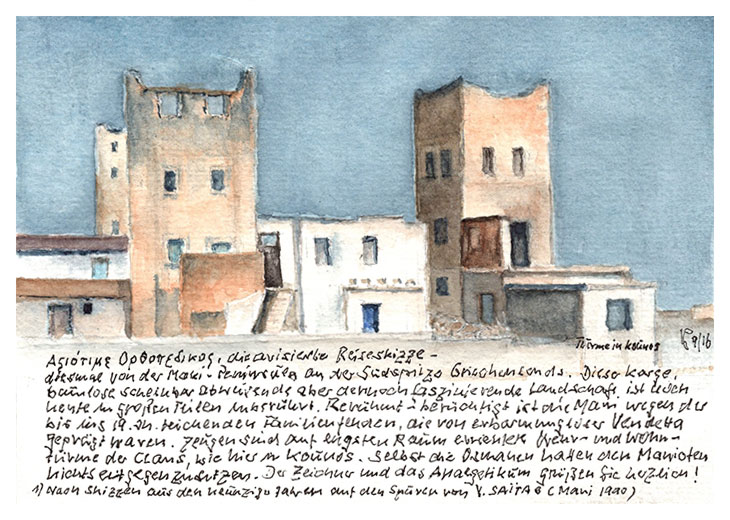 Türme in Kounos 9/16
Αξιότιμε Ορθοπεδικος, die avisierte Reiseskizze –
diesmal von der Mani-Peninsula an der Südspitze Griechenlands. Diese karge,
baumlose scheinbar abweisende aber dennoch faszinierende Landschaft ist auch
heute in großen Teilen unberührt. Berühmt & berüchtigt ist die Mani wegen der
bis ins 19. Jh. reichenden Familienfehden, die von erbarmungsloser Vendetta
geprägt waren. Zeugen sind auf engstem Raum errichtete Wehr- und Wohn-
türme der Clans, wie hier in Kounos. Selbst die Osmanen hatten den Manioten
nichts entgegenzusetzen. Der Zeichner und das Analgetikum grüßen Sie herzlich!
1) Nach Skizzen aus den neunziger Jahren auf den Spuren von Y. SAÏTAS (Mani 1990)